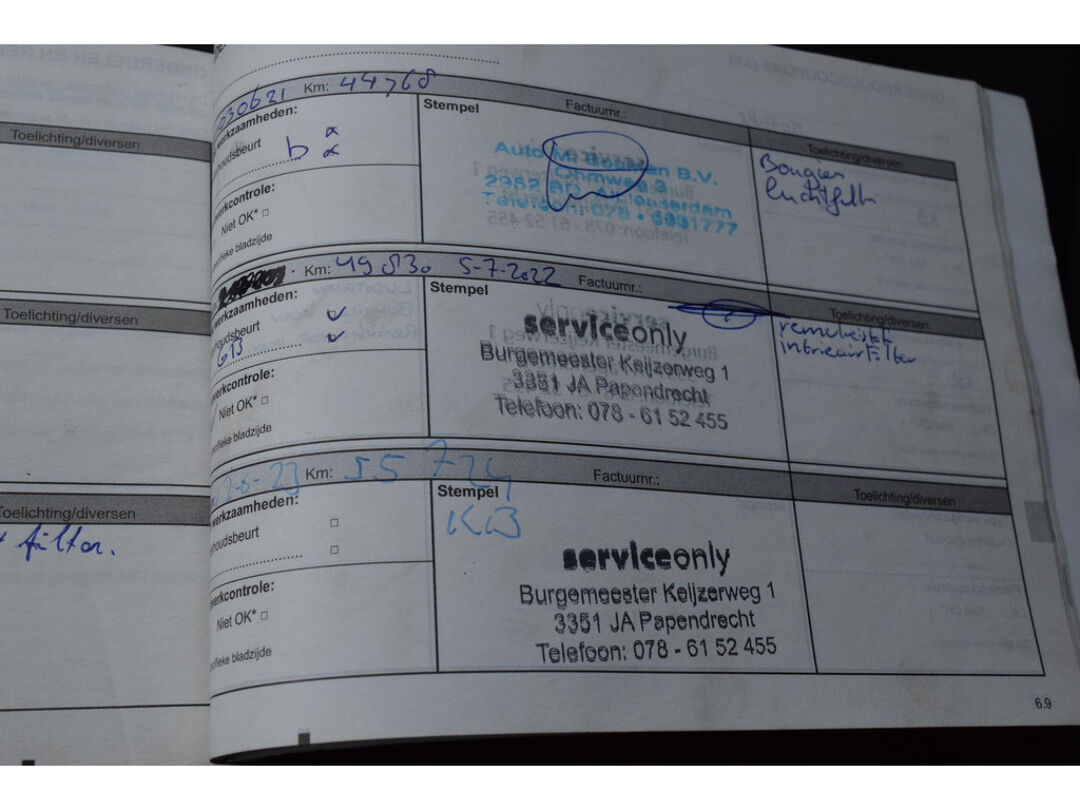 Toelichting/diversen
Toelichting/diversen
Toelichting/diversen
filter.
030621 Km: 44768
Stempel
Factuurnr.:
Toelichting/diversen
erkzaamheden:
houdsbeurt
b
werkcontrole:
Niet OK* □
fieke bladzijde
Auto M. B.V.
Ohmweg 3
2952 BD Alblasserdam
Telefoon: 078 - 6931777
Bougies
luchtfilt
Km: 49830 5-7-2022
Stempel
Factuurnr.:
Toelichting/diversen
erkzaamheden:
houdsbeurt
GB
werkcontrole:
Niet OK* □
ifieke bladzijde
serviceonly
Burgemeester Keijzerweg 1
3351 JA Papendrecht
Telefoon: 078 - 61 52 455
remvloeistof
intrieurfilter
2-6-23 Km: 55724
Stempel
Factuurnr.:
Toelichting/diversen
erkzaamheden:
rhoudsbeurt
□
□
KB
werkcontrole:
Niet OK* □
cifieke bladzijde
serviceonly
Burgemeester Keijzerweg 1
3351 JA Papendrecht
Telefoon: 078 - 61 52 455
6.9